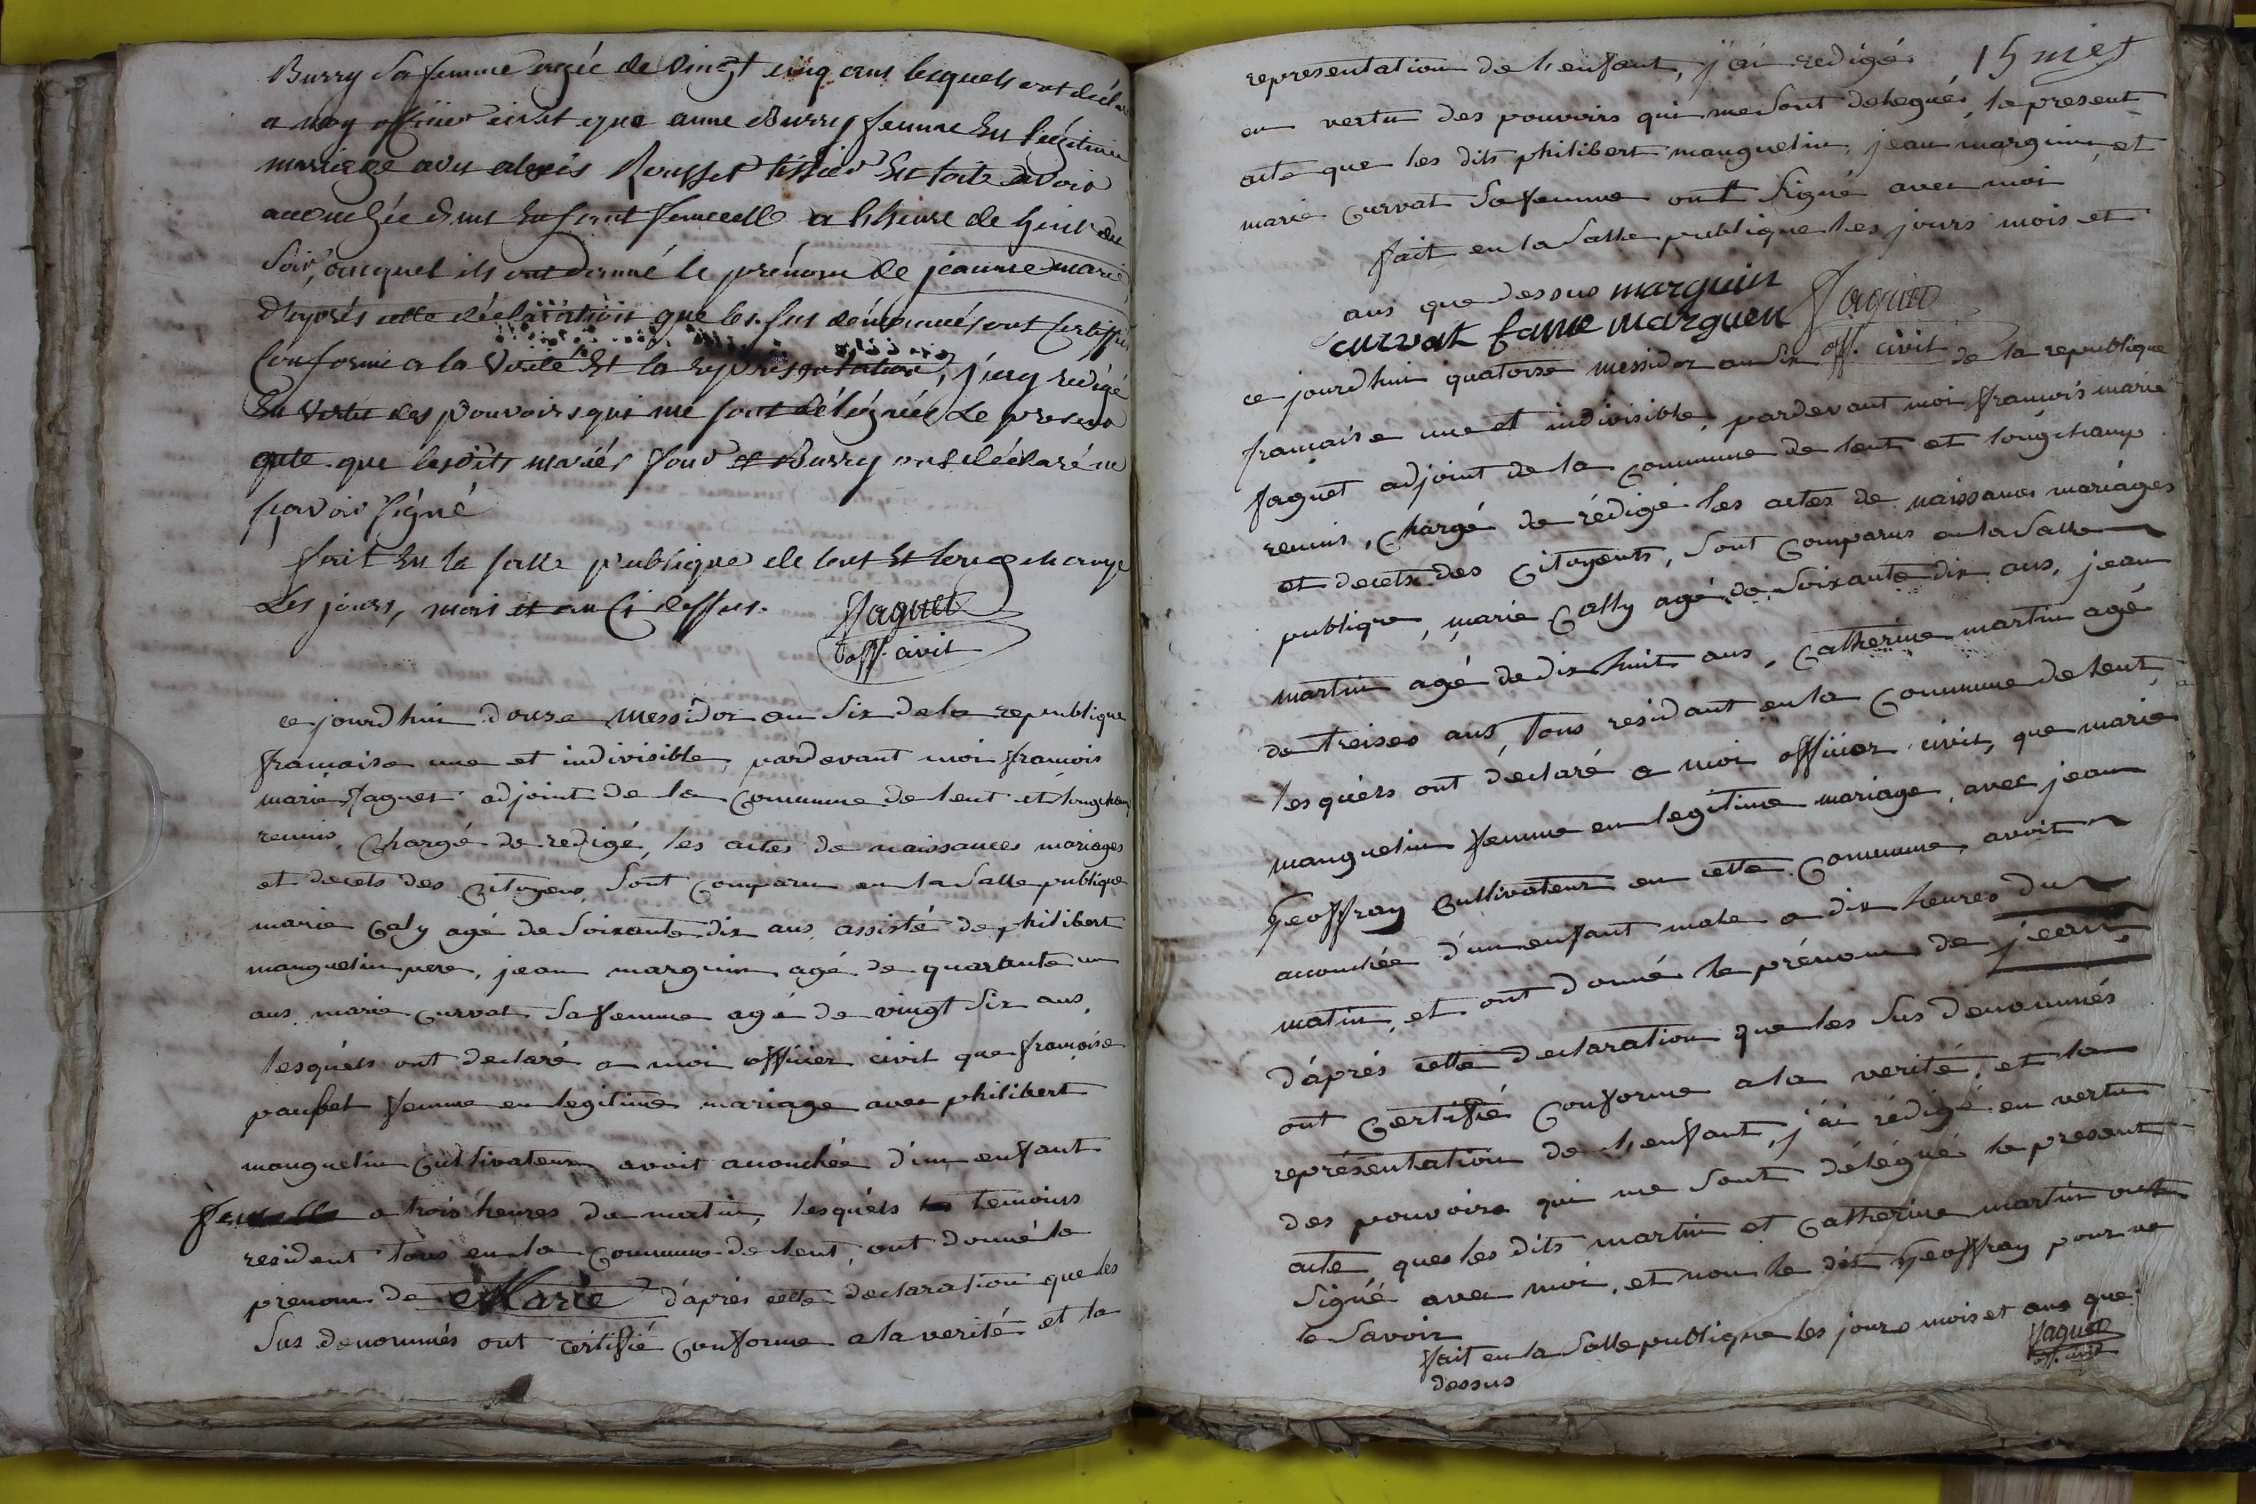 Burry sa femme agée de vingt cinq ans lesquels ont déclaré
a moy officier civil que anne Burry femme En légitime
mariage avec alexis Rousset tissier En toile avoir
accouchée d'une Enfant femelle a l'heure de huit du
soir, auquel ils ont donné le prénom de jeanne marie
d'après cette déclaration que les sus dénommés ont certiffié
Conforme a la Verité Et la représentation, j'ay redigé
En vertu des pouvoirs qui me sont délégués Le present
acte que lesdits mariés four et Burry ont déclaré ne
sçavoir signé
fait En la salle publique de lent Et longchamp
Les jours, mois et an Ci dessus.
Jaguet
off. civil
ce jourdhui douze messidor an six de la republique
francaise une et indivisible, pardevant moi francois
marie Jaguet adjoint de la Commune de lent et longchamp
reunis, Chargé de redigé, les actes de naissances mariages
et decets des Citoyens, sont Comparu en la salle publique
marie Caly agé de soixante dix ans, assisté de philibert
manguelin pere, jean marguin agé de quarante un
ans, marie curvat sa femme agé de vingt six ans,
lesquels ont declaré a moi officier civil que francoise
paufert femme en legitime mariage avec philibert
manguelin Cultivateur avoit accouchée d'un enfant
femelle a trois heures du matin, lesquels temoins
resident tous en la Commune de lent, ont donné le
prenom de Marie d'après cette declaration que les
sus denommés ont certifié Conforme a la verité et la
15 mes
representation de l'enfant, j'ai redigé
en vertu des pouvoirs qui me sont delegués, le present
acte que les dits philibert manguelin, jean marguin, et
marie Curvat sa femme ont signé avec moi
fait en la salle publique les jours mois et
ans que dessus marguin Jaguet
curvat fame marguen
off. civil
ce jourdhui quatorze messidor an six de la republique
francaise une et indivisible, pardevant moi francois marie
Jaguet adjoint de la Commune de lent et longchamp
reunis, Chargé de rédigé les actes de naissances mariages
et decets des Citoyents, sont Comparus en la salle
publique, marie Cally agé de soixante dix ans, jean
martin agé de dix huit ans, Catherine martin agé
de treises ans, tous residant en la Commune de lent,
lesquels ont déclaré a moi officier civil, que marie
manguelin femme en legitime mariage, avec jean
Geoffray Cultivateur en cette Commune, avoit
accouchée d'un enfant male a dix heures du
matin, et ont donné le prénom de jean
d'après cette declaration que les sus denommés
ont Certifié Conforme a la verité, et la
représentation de l'enfant, j'ai rédigé en vertu
des pouvoirs qui me sont délégué le present
acte, ques les dits martin et Catherine martin ont
signé avec moi, et non le dit Geoffray pour ne
le savoir
fait en la salle publique les jours mois et ans que
dessus
Jaguet
off. civil